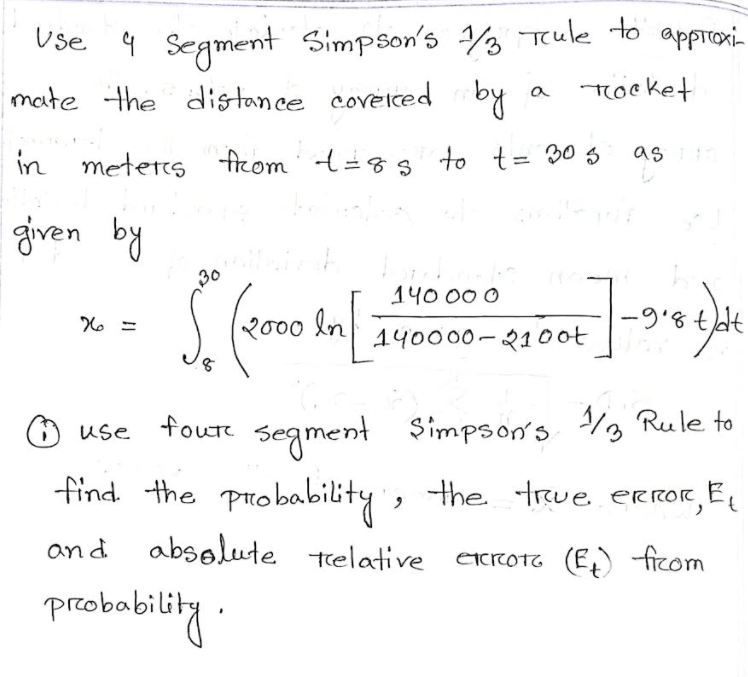 Use 4 Segment Simpson's 1/3 rule to approxi-
mate the distance covered by a rocket
in meters from t=8s to t= 30 s as
given by
x = ∫₈³⁰ (2000 ln [140000 / (140000-2100t)] -9.8t) dt
① use four segment Simpson's 1/3 Rule to
find the probability, the true error, Et
and absolute relative error (Et) from
probability.